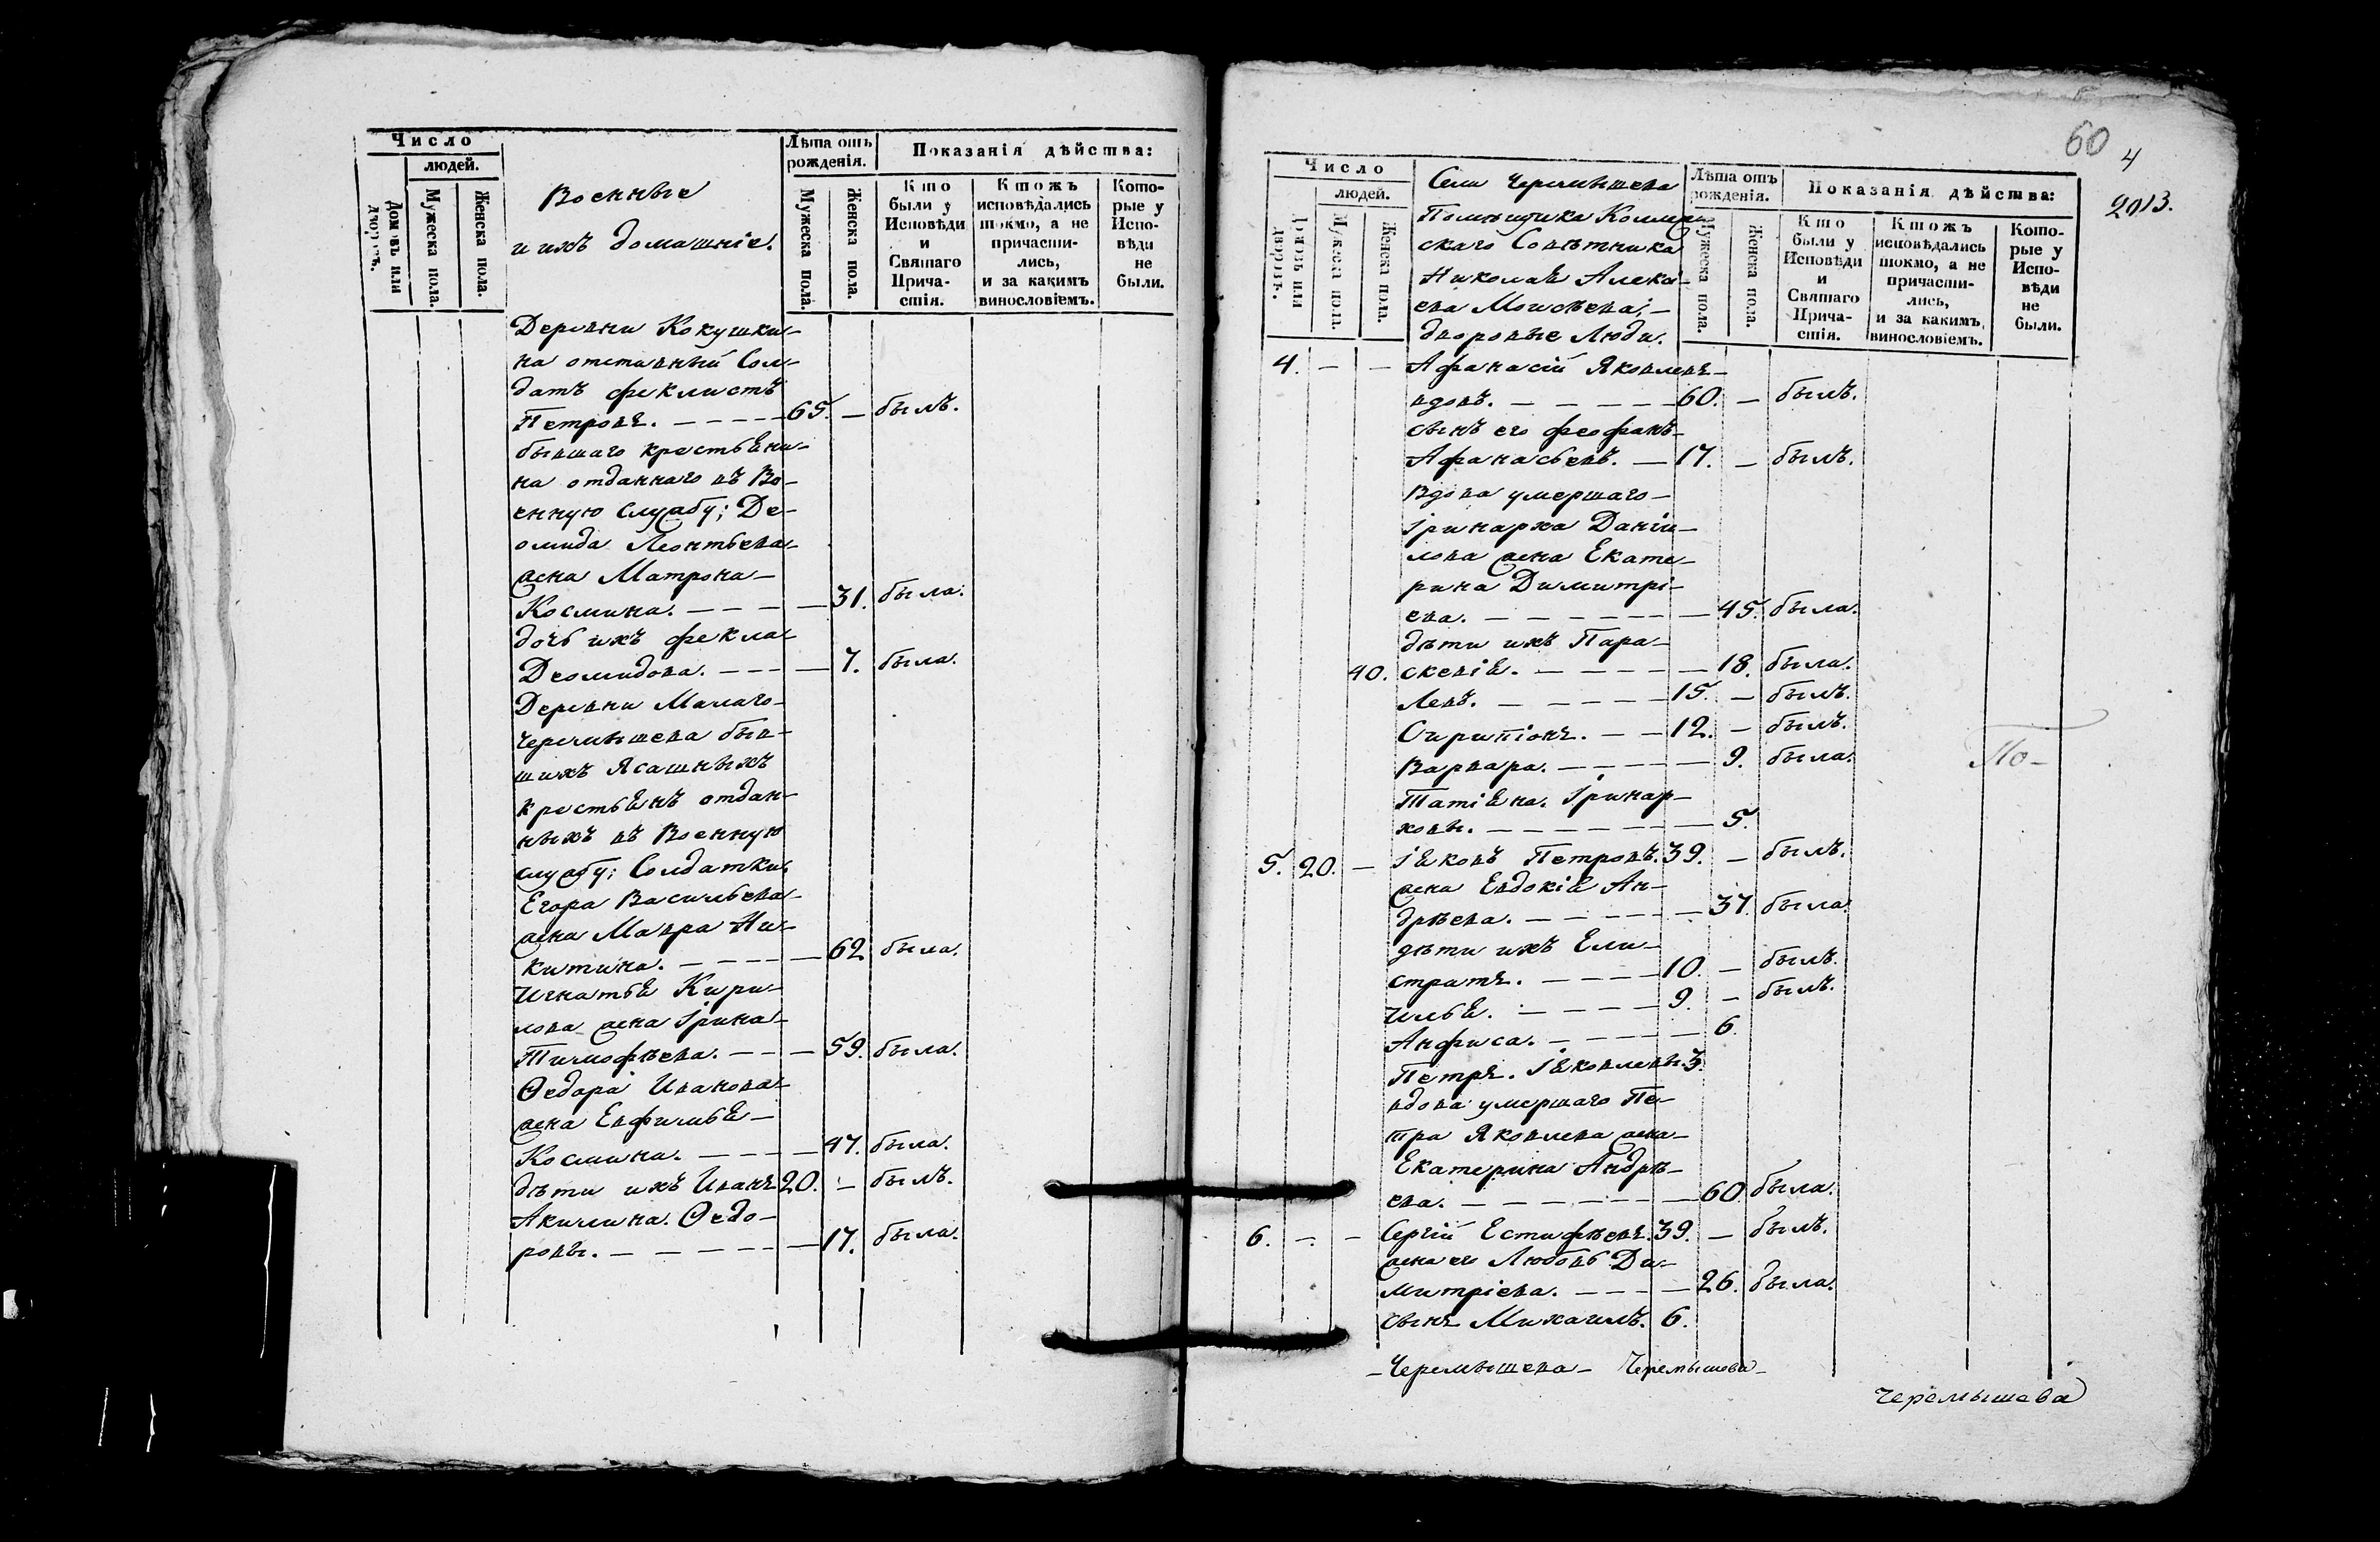 Число
людей.
Домовъ или дворовъ.
Мужеска пола.
Женска пола.
Военные
и ихъ домашніе.
Лѣта отъ
рожденія.
Мужеска пола.
Женска пола.
Показанія дѣйства:
Кто
были у
Исповѣди
и
Святаго
Прича-
стія.
Ктожъ
исповѣдались
токмо, а не
причасти-
лись,
и за какимъ
винословіемъ.
Кото-
рые у
Испо-
вѣди
не
были.
Деревни Кокушки-
на отставный Сол-
датъ Феклистъ
Петровъ. 65. — былъ.
бывшаго крестьѧни-
на отданнаго въ Во-
енную службу; Де-
омида Леонтьева
жена Матрона
Космина. — 31. была.
дочь ихъ Фекла
Деомидова. — 7. была.
Деревни Малаго
Черемышева быв-
шихъ Ясашныхъ
крестьѧнъ отдан-
ныхъ въ Военную
службу; Солдатки,
Егора Васильева
жена Мавра Ни-
китина. — 62 была.
Игнатьѧ Кири-
лова жена Ірина
Тимофѣева. — 59. была.
Ѳедора Иванова
жена Евфимьѧ
Космина. — 47. была.
дѣти ихъ Иванъ 20. — былъ.
Акилина. Ѳедо-
ровы. — 17. была.
60
4
2013.
Число
людей.
Домовъ или дворовъ.
Мужеска пола.
Женска пола.
Села Черемышева
Помѣщика Коллеж-
скаго Совѣтника
Николаѧ Алексѣ-
ева Моисѣева;
дворовые Люди.
Лѣта отъ
рожденія.
Мужеска пола.
Женска пола.
Показанія дѣйства:
Кто
были у
Исповѣди
и
Святаго
Прича-
стія.
Ктожъ
исповѣдались
токмо, а не
причасти-
лись,
и за какимъ
винословіемъ.
Кото-
рые у
Испо-
вѣди
не
были.
4. — — Афанасій Яковлевъ
вдовъ. 60. — былъ.
сынъ его Феофанъ
Афанасьевъ. 17. — былъ.
Вдова умершаго
Іринарха Даніи-
лова жена Екате-
рина Димитрі-
ева. — 45. была.
дѣти ихъ Пара-
40. скевіѧ. — 18. была.
Левъ. 15. — былъ.
Спиритіонъ. 12. — былъ.
Варвара. — 9. была.
Татіѧна. Іринар-
ховы. — 5.
По-
5. 20. — Іѧковъ Петровъ. 39. — былъ.
жена Евдокіѧ Ан-
дрѣева. — 37. была.
дѣти ихъ Ели-
стратъ. 10. — былъ.
Ильѧ. 9. — былъ.
Анфиса. — 6.
Петръ. Іѧковлевы. 3.
вдова умершаго Пе-
тра Яковлева жена
Екатерина Андрѣ-
ева. — 60. была.
6. — — Сергій Естифѣевъ. 39. — былъ.
жена его Любовь Ди-
митріева. — 26. была.
сынъ Михаилъ. 6.
Черемышева Черемышова
Черемышева